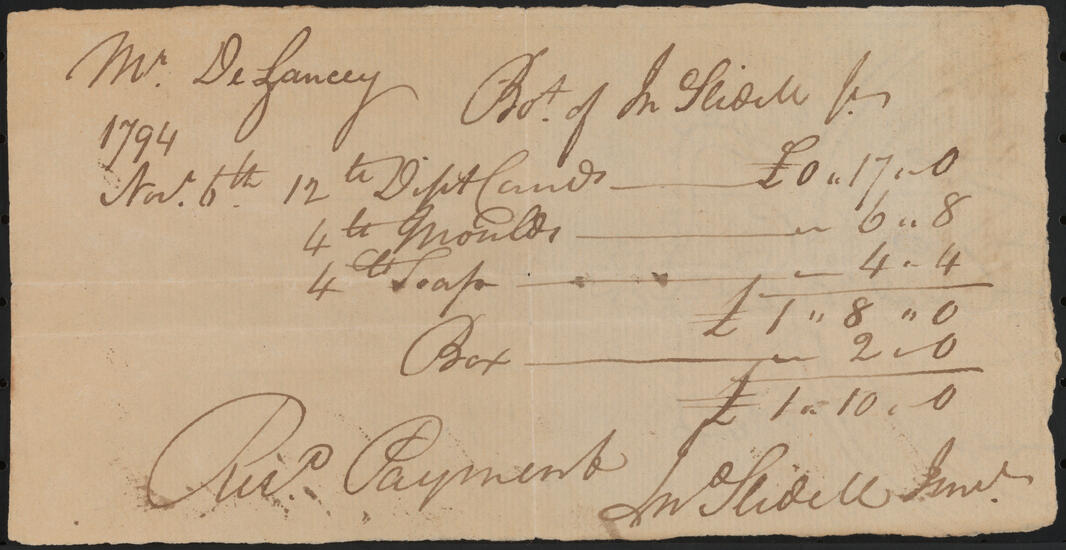 Mr. DeLancey Bot. of Jn Slidell Jr
1794
Novr. 6th. 12 lb Dipt Cands £0 " 17 " 0
4 lb Moulds " 6 " 8
4 lb Soap " 4 " 4
£ 1 " 8 " 0
Box " 2 " 0
£ 1 " 10 " 0
Recd. Payment
Jno Slidell Junr.